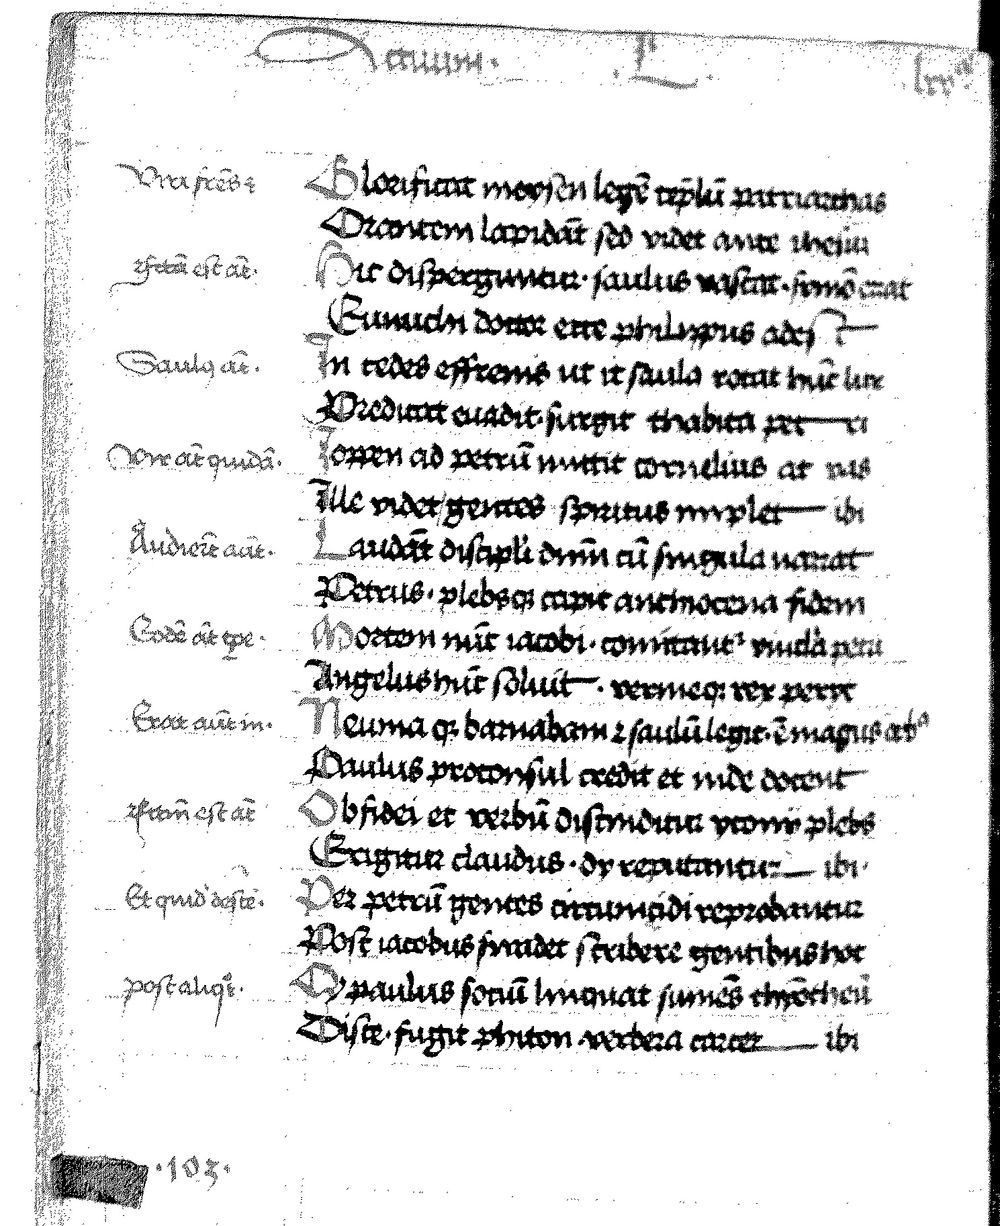 Actuum. .L. lxx
Viri frēs ⁊ Glorificat moysen legē tēplū patriarchas
Orantem lapidāt sed videt ante ihesū
Fctā est āt. Hic disperguntur. saulus vastat. symō erat
Eunuchi doctor ecce philippus adest
Saulꝰ āt. In cedes effrenis ut it saula rotat hūc lux
Predicat evadit. surgit thabita petri
Vir āt quidā. Joppen ad petrū mittit cornelius at vas
Ille videt gentes spiritus implet ibi
Audierūt aūt. Laudāt discipli dnm cū singula narrat
Petrus. plebsqꝫ capit anthiocena fidem
Eodē āt tpe. Mortem nūc iacobi. comittant vincla petri
Angelus hūc solvit. vermeqꝫ rex perit
Erāt aūt in. Neuma qꝫ barnabam ⁊ saulū legit. ē magus
Paulus proconsul credit et inde docent
Fctm est āt Ob fidei et verbū discinditur yconii plebs
Erigitur claudus. dy reputantur ibi.
Et quid desce. Per petrū gentes circumcidi reprobantur
Post iacobus suadet scribere gentibus hoc
post aliqt. Qy paulus sociū linquat sumēs thymotheū
Disce. fugit phiton. verbera carcer ibi
.103.